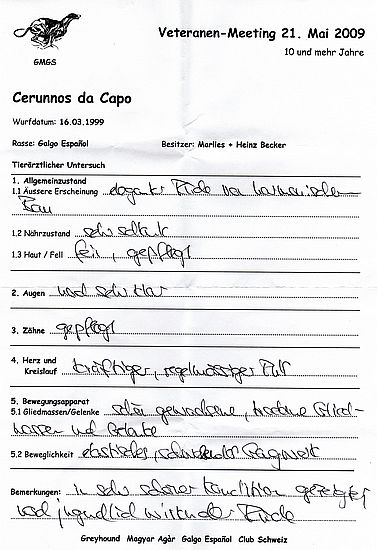 GMGS
Veteranen-Meeting 21. Mai 2009
10 und mehr Jahre
Cerunnos da Capo
Wurfdatum: 16.03.1999
Rasse: Galgo Español Besitzer: Marlies + Heinz Becker
Tierärztlicher Untersuch
1. Allgemeinzustand
1.1 Äussere Erscheinung eleganter Rüde von harmonischem
Bau
1.2 Nährzustand sehr schlank
1.3 Haut / Fell fein, gepflegt
2. Augen noch sehr klar
3. Zähne gepflegt
4. Herz und
Kreislauf kräftiger, regelmässiger Puls
5. Bewegungsapparat
5.1 Gliedmassen/Gelenke schön gewachsene, trockene Glied-
massen und Gelenke
5.2 Beweglichkeit elastisches, schwebendes Gangwerk
Bemerkungen: in sehr schöner Kondition gezeigter
noch jugendlich wirkender Rüde
Greyhound Magyar Agàr Galgo Español Club Schweiz